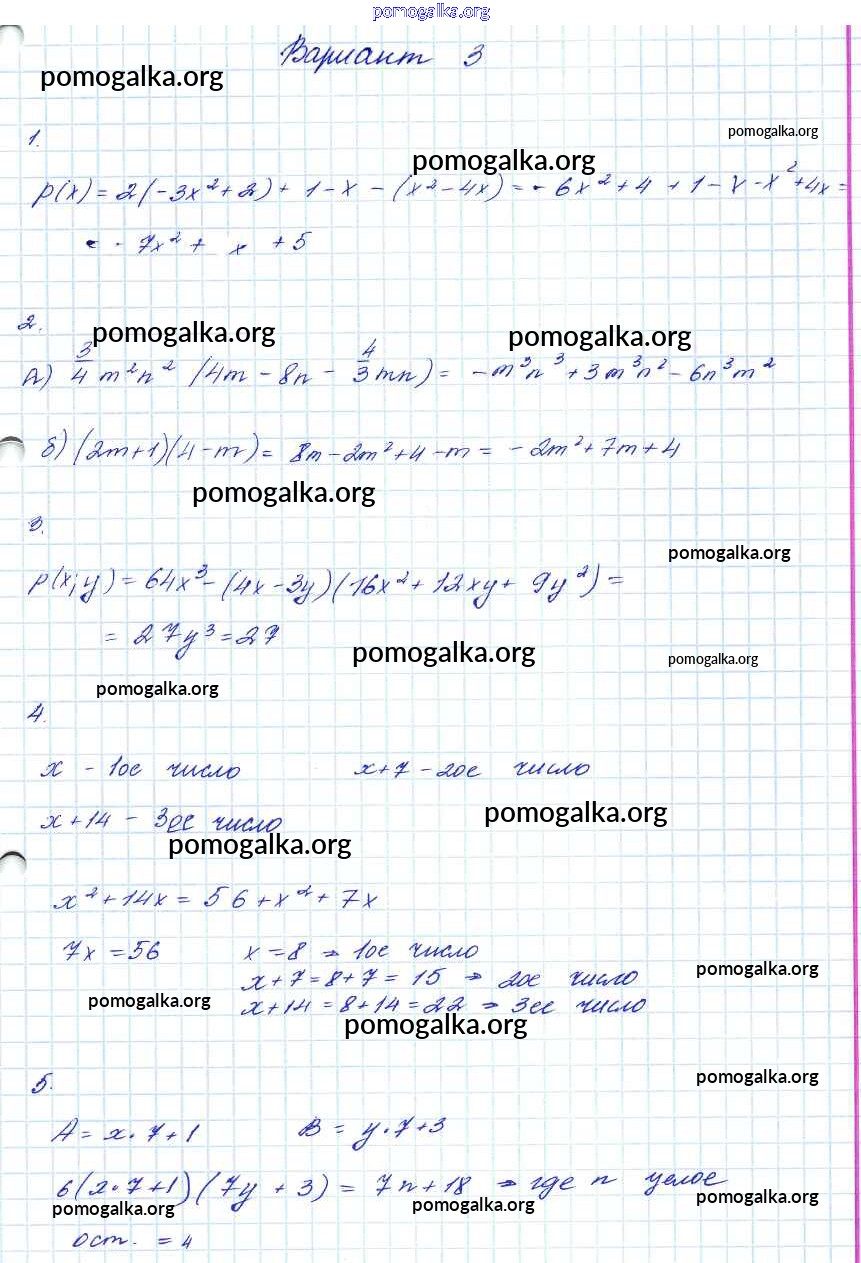 pomogalka.org
Вариант 3
pomogalka.org
1.
pomogalka.org
pomogalka.org
p(x) = 2(-3x²+2) + 1-x - (x²-4x) = - 6x² + 4 + 1 - x - x² + 4x =
= - 7x² + x + 5
2.
pomogalka.org
pomogalka.org
а) 3/4 m²n² (4m - 8n - 4/3 mn) = - m³n³ + 3m³n² - 6n³m²
б) (2m+1)(4-m) = 8m - 2m² + 4 - m = - 2m² + 7m + 4
pomogalka.org
3.
pomogalka.org
p(x;y) = 64x³ - (4x - 3y)(16x² + 12xy + 9y²) =
= 27y³ = 27
pomogalka.org
pomogalka.org
pomogalka.org
4.
x - 1ое число x+7 - 2ое число
x+14 - 3ее число
pomogalka.org
pomogalka.org
x² + 14x = 56 + x² + 7x
7x = 56 x = 8 → 1ое число
x+7 = 8+7 = 15 → 2ое число
pomogalka.org
x+14 = 8+14 = 22 → 3ее число
pomogalka.org
pomogalka.org
5.
pomogalka.org
A = x·7+1 B = y·7+3
6(x·7+1)(7y+3) = 7n+18 → где n целое
pomogalka.org
pomogalka.org
pomogalka.org
ост. = 4